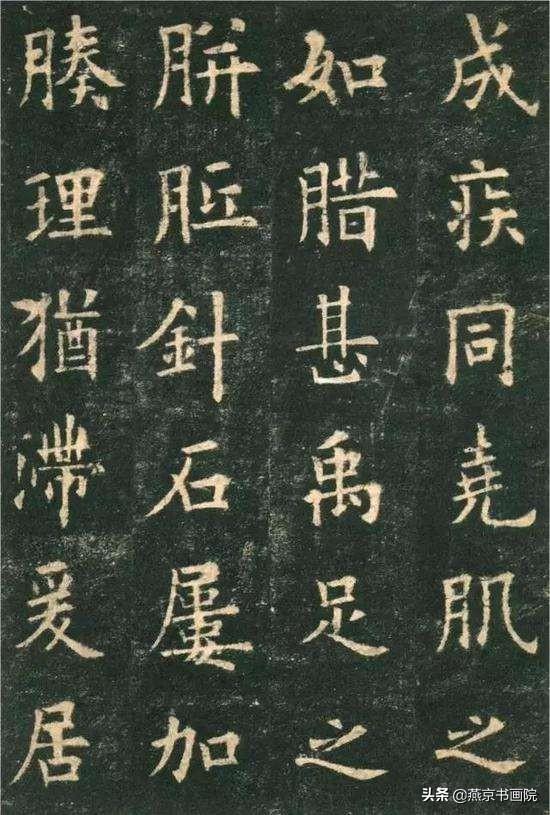 成疾同堯肌之
如腊甚禹足之
胼胝針石屢加
腠理猶滯爰居
头条 @燕京书画院